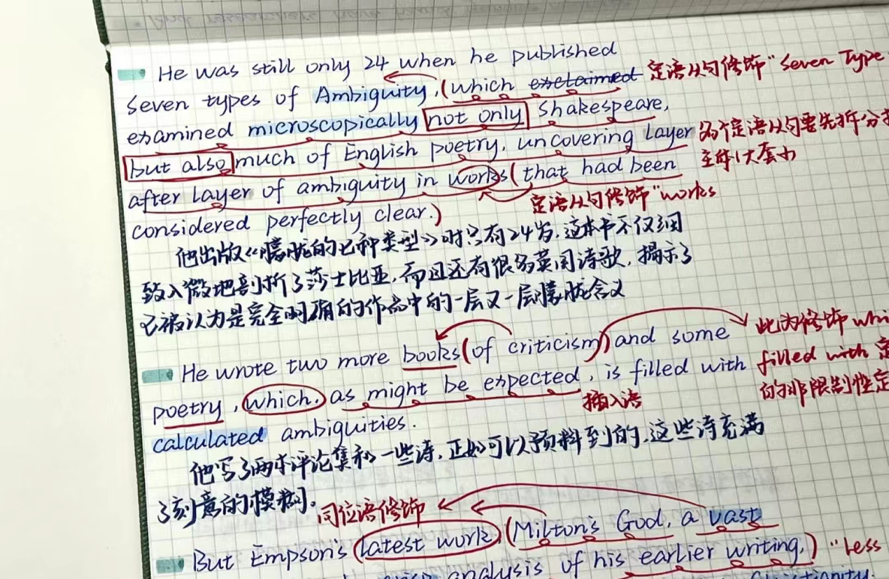 He was still only 24 when he published
Seven types of Ambiguity, (which exclaimed 定语从句修饰 "Seven Type
examined microscopically not only Shakespeare,
but also much of English poetry, uncovering layer 多个定语从句要先拆分
after layer of ambiguity in works (that had been
定语从句修饰 "works
considered perfectly clear.)
他出版《朦胧的七种类型》时只有24岁,这本书不仅细
致入微地剖析了莎士比亚,而且还有很多英国诗歌,揭示了
已被认为是完全明确的作品中的一层又一层朦胧含义
He wrote two more books (of criticism) and some 此为修饰 whi
poetry, which, as might be expected, is filled with filled with 定
的非限制性定
插入语
calculated ambiguities.
他写了两本评论集和一些诗,正如可以预料到的,这些诗充满
了刻意的模糊。
同位语修饰
But Empson's latest work (Milton's God, a vast
analysis of his earlier writing,) "Less